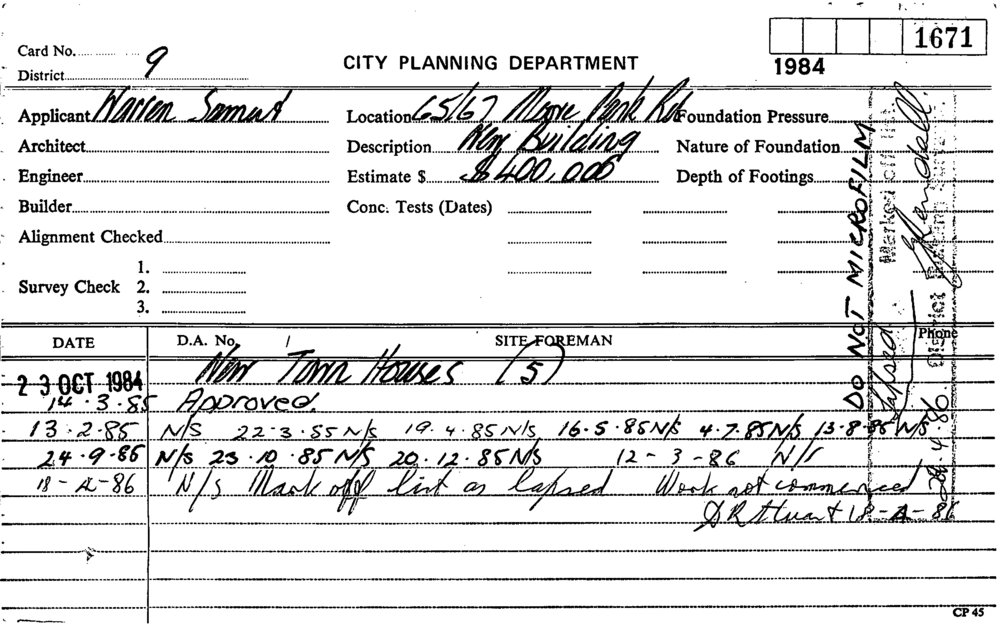 1671
Card No. 9
District
CITY PLANNING DEPARTMENT
1984
Applicant Warren Location 65/67 Moore Park Rd Foundation Pressure
Architect Description New Building Nature of Foundation
Engineer Estimate $ $400,000 Depth of Footings
Builder Conc. Tests (Dates)
Alignment Checked
1.
Survey Check 2.
3.
DO NOT MICROFILM
Marked off list
lapsed
District
28.4.86
DATE D.A. No. SITE FOREMAN Phone
23 OCT 1984 New Town Houses (5)
14.3.85 Approved.
13.2.85 N/S 22-3-85 N/S 19.4.85 N/S 16.5.85 N/S 4.7.85 N/S 13-8-85 N/S
24.9.85 N/S 23.10.85 N/S 20.12.85 N/S 12-3-86 N/S
18-4-86 N/S Mark off list as lapsed Work not commenced
D R Stuart 18-4-86
CP 45